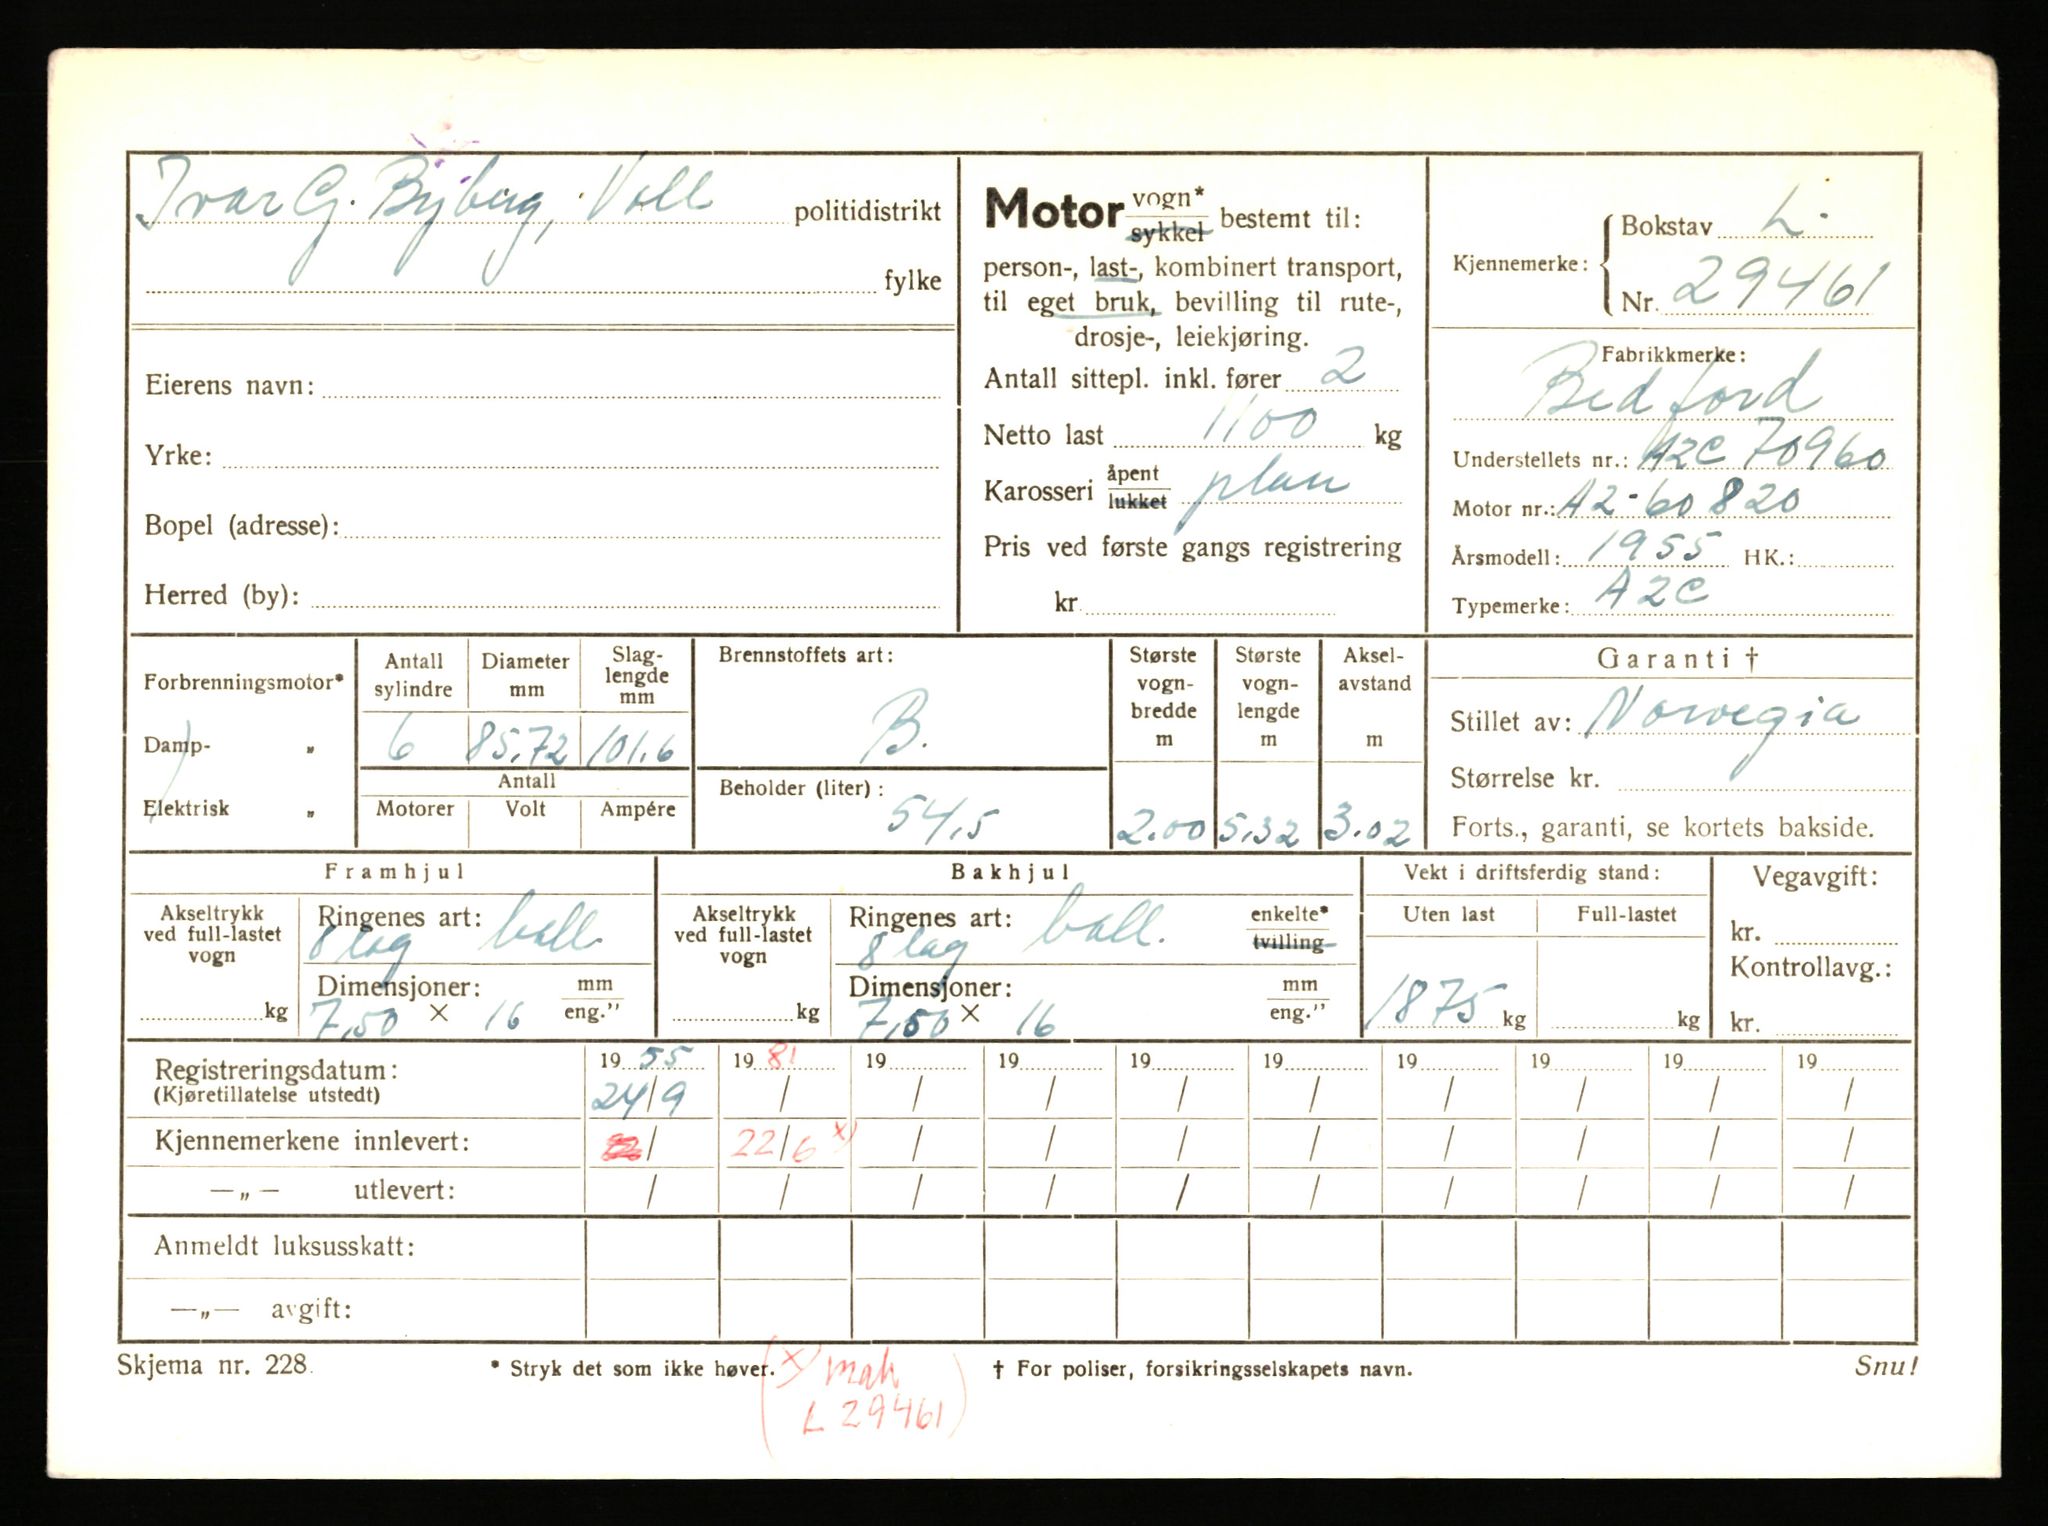 Ivar G. Byberg, Voll politidistrikt
fylke
Eierens navn:
Yrke:
Bopel (adresse):
Herred (by):
Motor vogn* sykkel bestemt til:
person-, last-, kombinert transport,
til eget bruk, bevilling til rute-,
drosje-, leiekjøring.
Antall sittepl. inkl. fører 2
Netto last 1100 kg
Karosseri åpent lukket plan
Pris ved første gangs registrering
kr.
Kjennemerke: Bokstav L.
Nr. 29461
Fabrikkmerke:
Bedford
Understellets nr.: A2C 70960
Motor nr.: A2-60820
Årsmodell: 1955 HK.:
Typemerke: A2C
Forbrenningsmotor*
Damp- „
Elektrisk „
Antall sylindre
Diameter mm
Slag-lengde mm
6 85,72 101,6
Antall
Motorer Volt Ampére
Brennstoffets art:
B.
Beholder (liter):
54,5
Største vogn-bredde m
2.00
Største vogn-lengde m
5,32
Aksel-avstand m
3.02
Garanti †
Stillet av: Norvegia
Størrelse kr.
Forts., garanti, se kortets bakside.
Framhjul
Akseltrykk ved full-lastet vogn
kg
Ringenes art: 8 lag ball.
Dimensjoner: mm eng.”
7,50 × 16
Bakhjul
Akseltrykk ved full-lastet vogn
kg
Ringenes art: 8 lag ball. enkelte* tvilling
Dimensjoner: mm eng.”
7,50 × 16
Vekt i driftsferdig stand:
Uten last Full-lastet
1875 kg kg
Vegavgift:
kr.
Kontrollavg.:
kr.
Registreringsdatum: 19 55 19 81 19 19 19 19 19 19 19 19
(Kjøretillatelse utstedt) 24/9 / / / / / / / / /
Kjennemerkene innlevert: / 22/6 x) / / / / / / / /
—„— utlevert: / / / / / / / / / /
Anmeldt luksusskatt:
—„— avgift:
Skjema nr. 228.
* Stryk det som ikke høver.
† For poliser, forsikringsselskapets navn.
Snu!
(x) mah
L 29461)